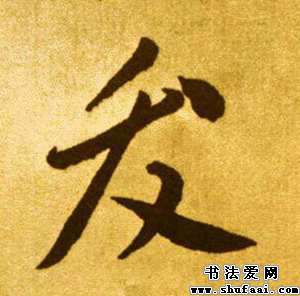 发
书法爱网
www.shufaai.com